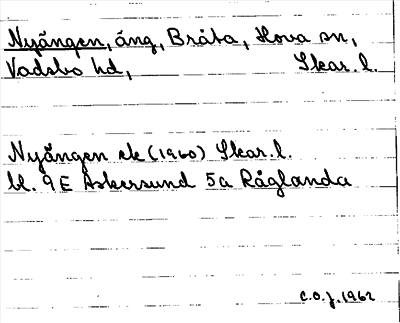 Nyängen, äng, Bråta, Hova sn,
Vadsbo hd, Skar. l.
Nyängen ek (1960) Skar. l.
bl. 9E Askersund 5a Råglanda
C.O.J. 1962